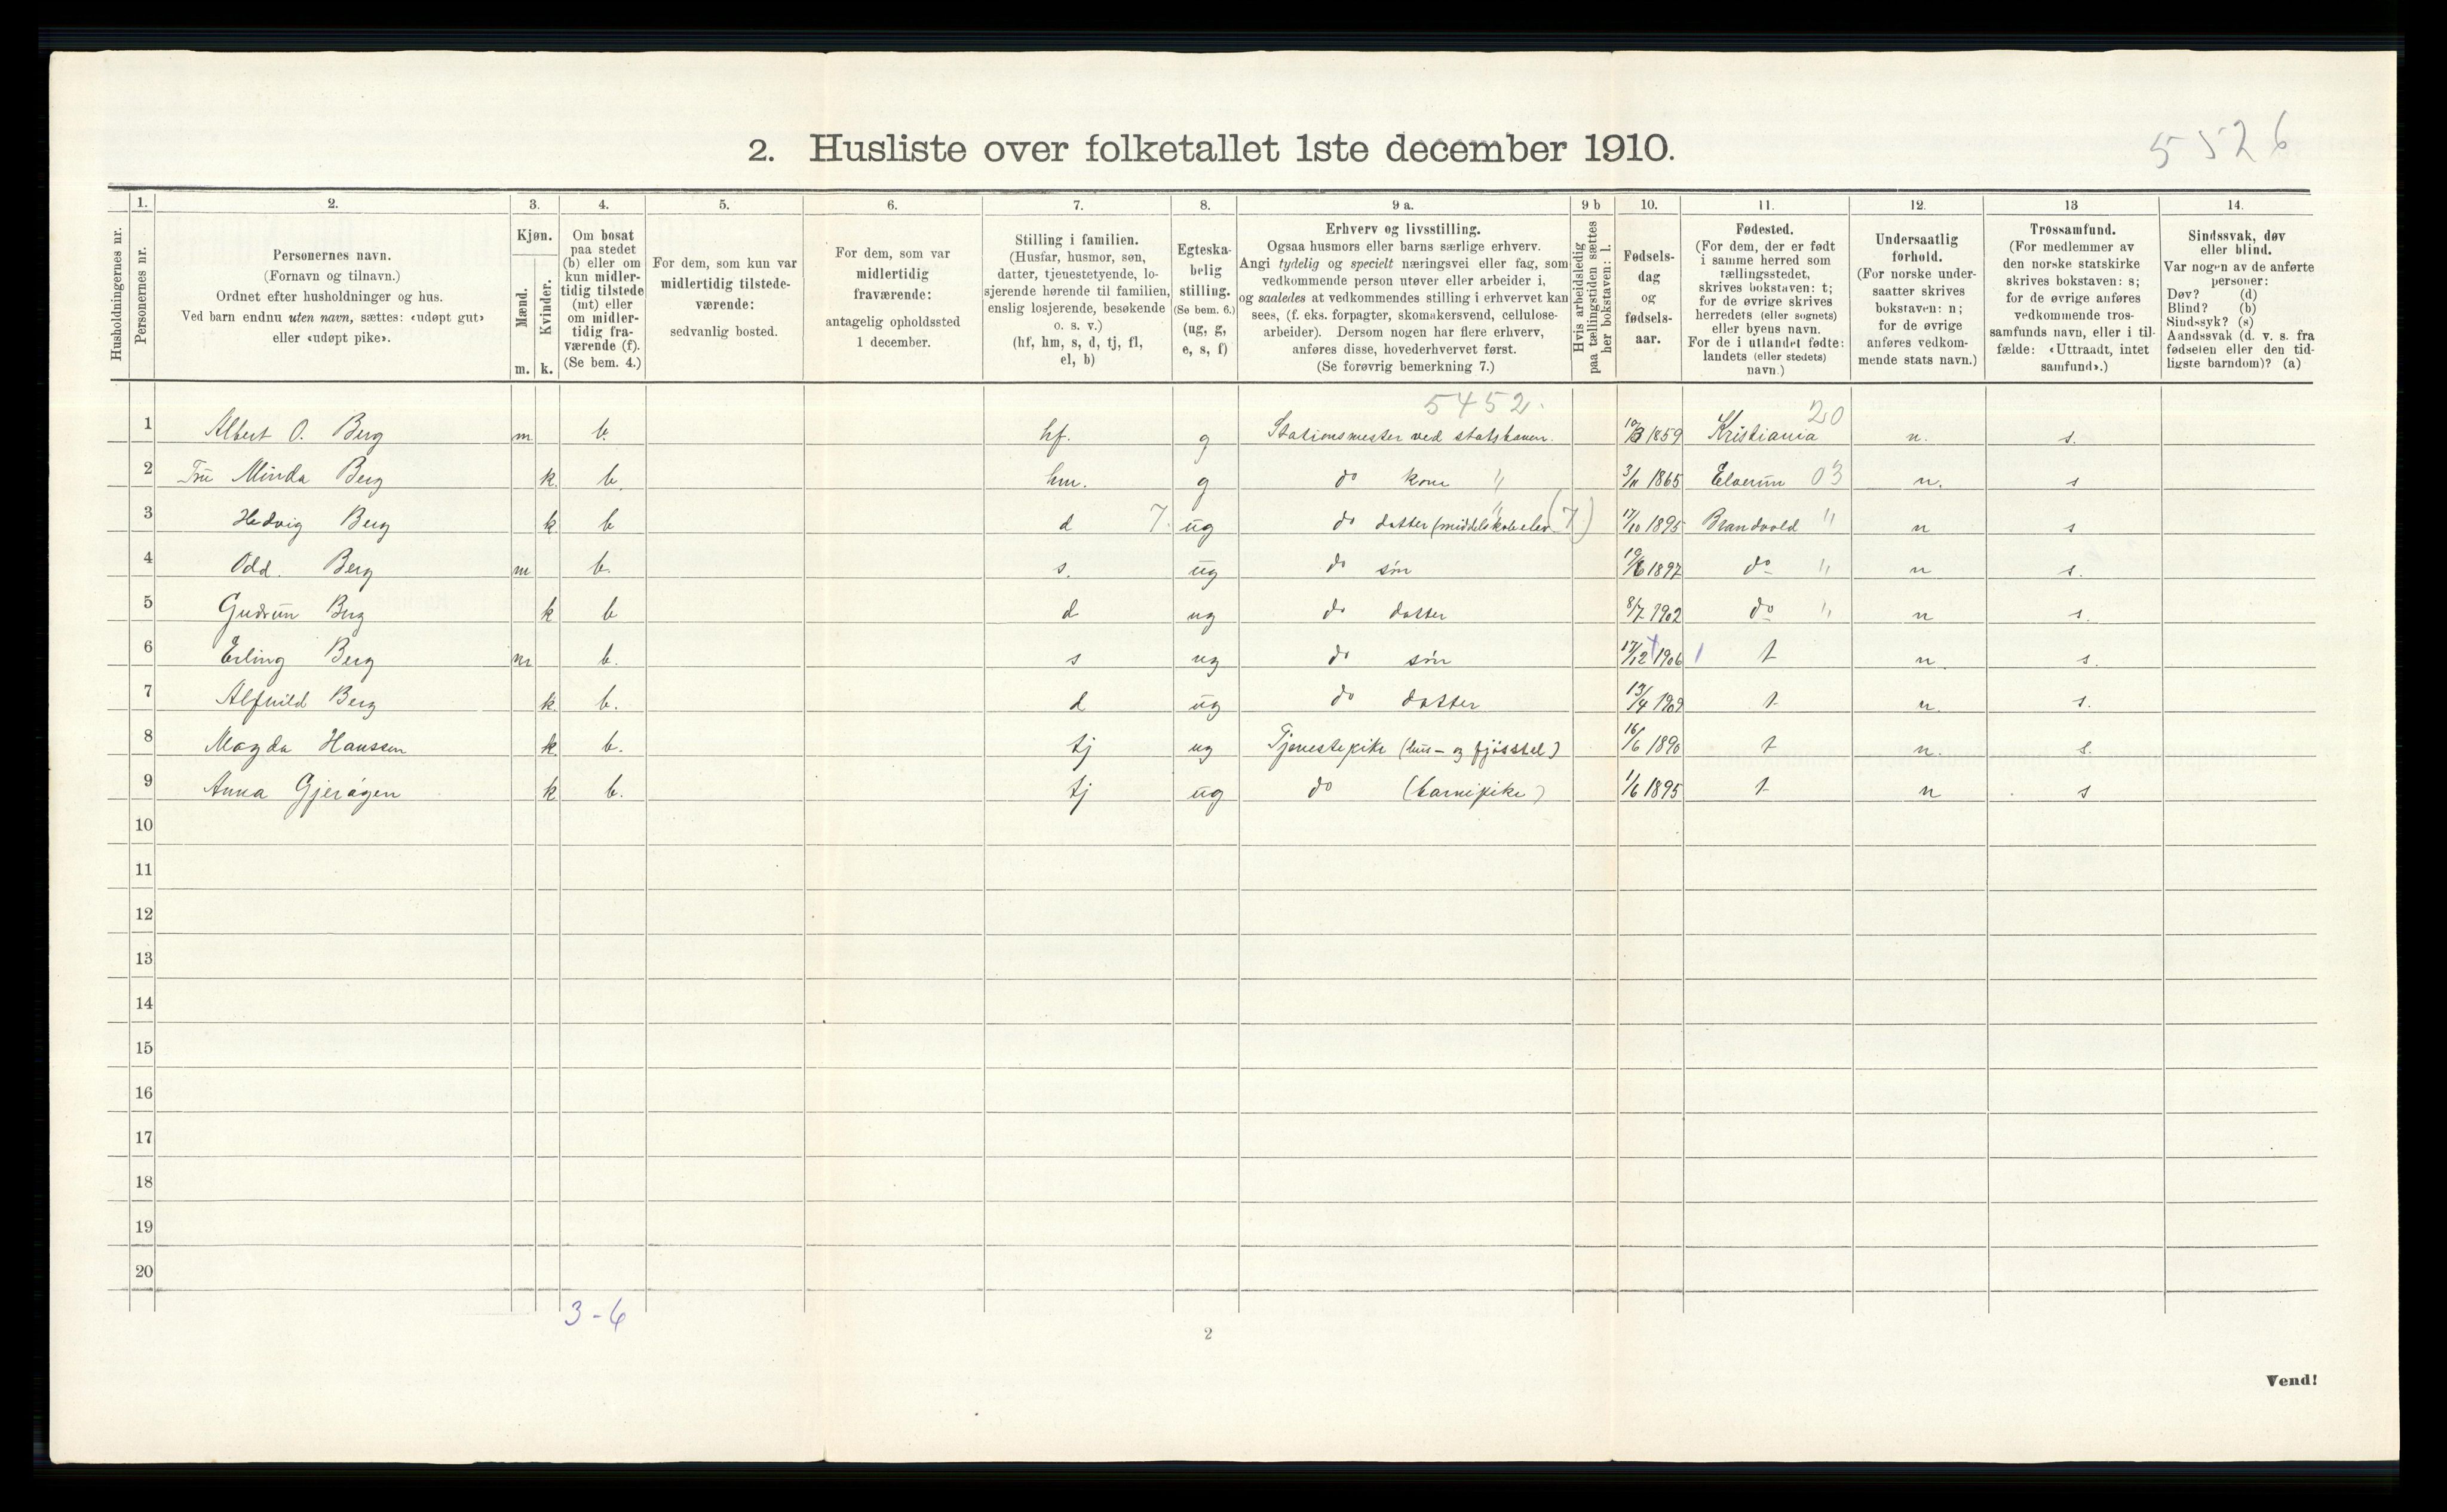 5526
2. Husliste over folketallet 1ste december 1910.
Husholdningernes nr.
1. Personernes nr.
2. Personernes navn.
(Fornavn og tilnavn.)
Ordnet efter husholdninger og hus.
Ved barn endnu uten navn, sættes: «udøpt gut»
eller «udøpt pike».
3. Kjøn.
Mænd. m.
Kvinder. k.
4. Om bosat
paa stedet
(b) eller om
kun midler-
tidig tilstede
(mt) eller
om midler-
tidig fra-
værende (f).
(Se bem. 4.)
5. For dem, som kun var
midlertidig tilstede-
værende:
sedvanlig bosted.
6. For dem, som var
midlertidig
fraværende:
antagelig opholdssted
1 december.
7. Stilling i familien.
(Husfar, husmor, søn,
datter, tjenestetyende, lo-
sjerende hørende til familien,
enslig losjerende, besøkende
o. s. v.)
(hf, hm, s, d, tj, fl,
el, b)
8. Egteska-
belig
stilling.
(Se bem. 6.)
(ug, g,
e, s, f)
9 a. Erhverv og livsstilling.
Ogsaa husmors eller barns særlige erhverv.
Angi tydelig og specielt næringsvei eller fag, som
vedkommende person utøver eller arbeider i,
og saaledes at vedkommendes stilling i erhvervet kan
sees, (f. eks. forpagter, skomakersvend, cellulose-
arbeider). Dersom nogen har flere erhverv,
anføres disse, hovederhvervet først.
(Se forøvrig bemerkning 7.)
9 b Hvis arbeidsledig
paa tællingstiden sættes
her bokstaven: l.
10. Fødsels-
dag
og
fødsels-
aar.
11. Fødested.
(For dem, der er født
i samme herred som
tællingsstedet,
skrives bokstaven: t;
for de øvrige skrives
herredets (eller sognets)
eller byens navn.
For de i utlandet fødte:
landets (eller stedets)
navn.)
12. Undersaatlig
forhold.
(For norske under-
saatter skrives
bokstaven: n;
for de øvrige
anføres vedkom-
mende stats navn.)
13 Trossamfund.
(For medlemmer av
den norske statskirke
skrives bokstaven: s;
for de øvrige anføres
vedkommende tros-
samfunds navn, eller i til-
fælde: «Uttraadt, intet
samfund».)
14. Sindssvak, døv
eller blind.
Var nogen av de anførte
personer:
Døv? (d)
Blind? (b)
Sindssyk? (s)
Aandssvak (d. v. s. fra
fødselen eller den tid-
ligste barndom)? (a)
5452. 20
1 Albert O. Berg m b. hf. g Stationsmester ved statsbanen. 1859 Kristiania n. s.
2 Fru Minda Berg k. b. hm. g do kone " 3/11 1865 Elverum 03 n. s
3 Hedvig Berg k b d 7. ug do datter (middelskoleelev " (7) 17/10 1895 Brandvold " n s
4 Odd. Berg m b. s. ug do søn 1897 do " n s.
5 Gudrun Berg k b d ug do datter 8/7 1902 do " n s.
6 Erling Berg m b. s ug do søn 17/12 1906 t n. s.
7 Alfhild Berg k. b. d ug do datter 13/4 1909 t n. s.
8 Magda Hanssen k. b. tj ug Tjenestepike (hus- og fjøsstel) 16/6 1890 t n. s.
9 Anna Gjerågen k b. tj ug do (barnepike) 1/6 1895 t n s
10
11
12
13
14
15
16
17
18
19
20
3-6
2
Vend!